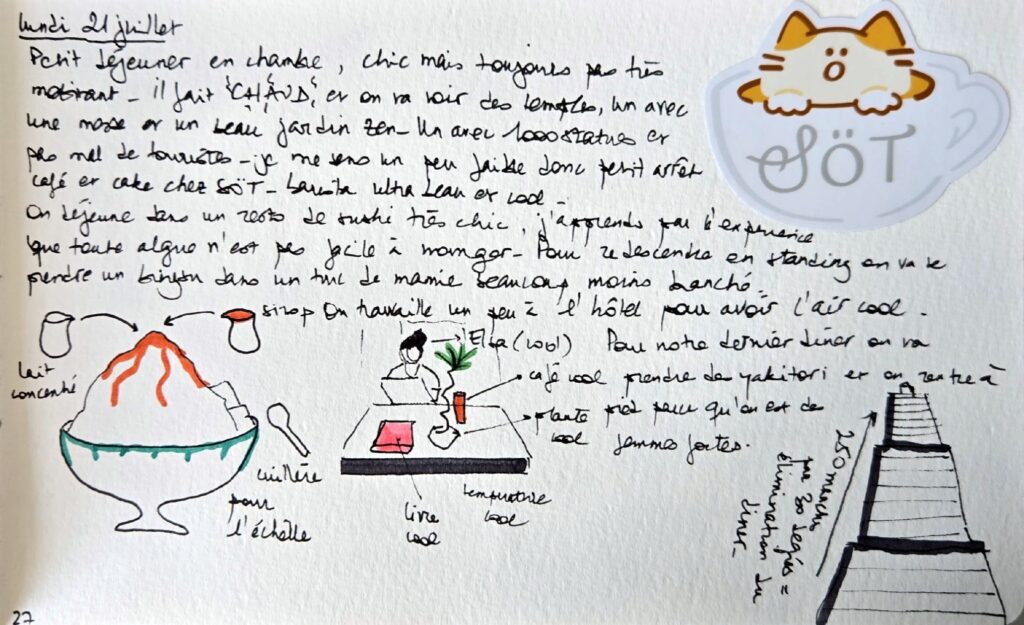 lundi 21 juillet
Petit déjeuner en chambre, chic mais toujours pas très
motivant - il fait "CHAUD", et on va voir des temples, un avec
une mosse et un beau jardin zen - Un avec 1000 statues et
pas mal de touristes - je me sens un peu faible donc petit arrêt
café et cake chez SÖT - barista ultra beau et cool -
On déjeune dans un resto de sushi très chic, j'apprends par l'expérience
que toute algue n'est pas facile à manger - Pour redescendre en standing on va se
prendre un bingsu dans un truc de mamie beaucoup moins branché.
On travaille un peu à l'hôtel pour avoir l'air cool.
Pour notre dernier dîner on va
prendre des yakitori et on rentre à
pied parce qu'on est des
femmes fortes.
SÖT
sirop
lait
concentré
cuillère
pour
l'échelle
Elsa (cool)
café cool
plante
cool
température
cool
livre
cool
250 marches
par 30 degrés =
élimination du
diner -
27